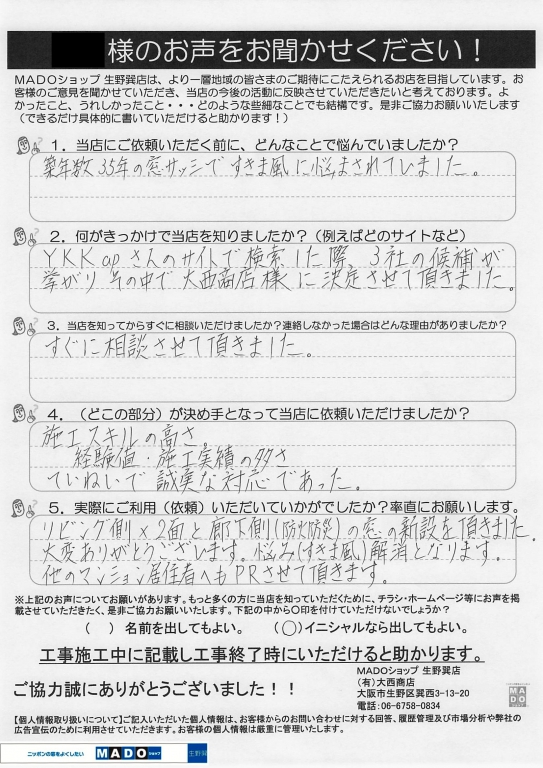 様のお声をお聞かせください！
MADOショップ 生野巽店は、より一層地域の皆さまのご期待にこたえられるお店を目指しています。お
客様のご意見を聞かせていただき、当店の今後の活動に反映させていただきたいと考えております。よ
かったこと、うれしかったこと・・・どのような些細なことでも結構です。是非ご協力お願いいたします
（できるだけ具体的に書いていただけると助かります！）
１．当店にご依頼いただく前に、どんなことで悩んでいましたか？
築年数35年の窓サッシですきま風に悩まされていました。
２．何がきっかけで当店を知りましたか？（例えばどのサイトなど）
YKK apさんのサイトで検索した際、3社の候補が
挙がり その中で大西商店様に決定させて頂きました。
３．当店を知ってからすぐに相談いただけましたか？連絡しなかった場合はどんな理由がありましたか？
すぐに相談させて頂きました。
４．（どこの部分）が決め手となって当店に依頼いただけましたか？
施工スキルの高さ。
経験値・施工実績の多さ
ていねいで誠実な対応であった。
５．実際にご利用（依頼）いただいていかがでしたか？率直にお願いします。
リビング側×2面と廊下側(防火防災)の窓の新設を頂きました。
大変ありがとうございます。悩み(すきま風)解消となります。
他のマンション居住者へもPRさせて頂きます。
※上記のお声についてお願いがあります。もっと多くの方に当店を知っていただくために、チラシ・ホームページ等にお声を掲
載させていただきたく、是非ご協力お願いいたします。下記の中から〇印を付けていただけないでしょうか？
（　）名前を出してもよい。　（〇）イニシャルなら出してもよい。
工事施工中に記載し工事終了時にいただけると助かります。
ご協力誠にありがとうございました！！
MADOショップ 生野巽店
(有)大西商店
大阪市生野区巽西3-13-20
電話：06-6758-0834
MADO
【個人情報取り扱いについて】ご記入いただいた個人情報は、お客様からのお問い合わせに対する回答、履歴管理及び市場分析や弊社の
広告宣伝のために利用させていただきます。お客様の個人情報は厳重に管理いたします。
ニッポンの窓をよくしたい MADOショップ 生野巽